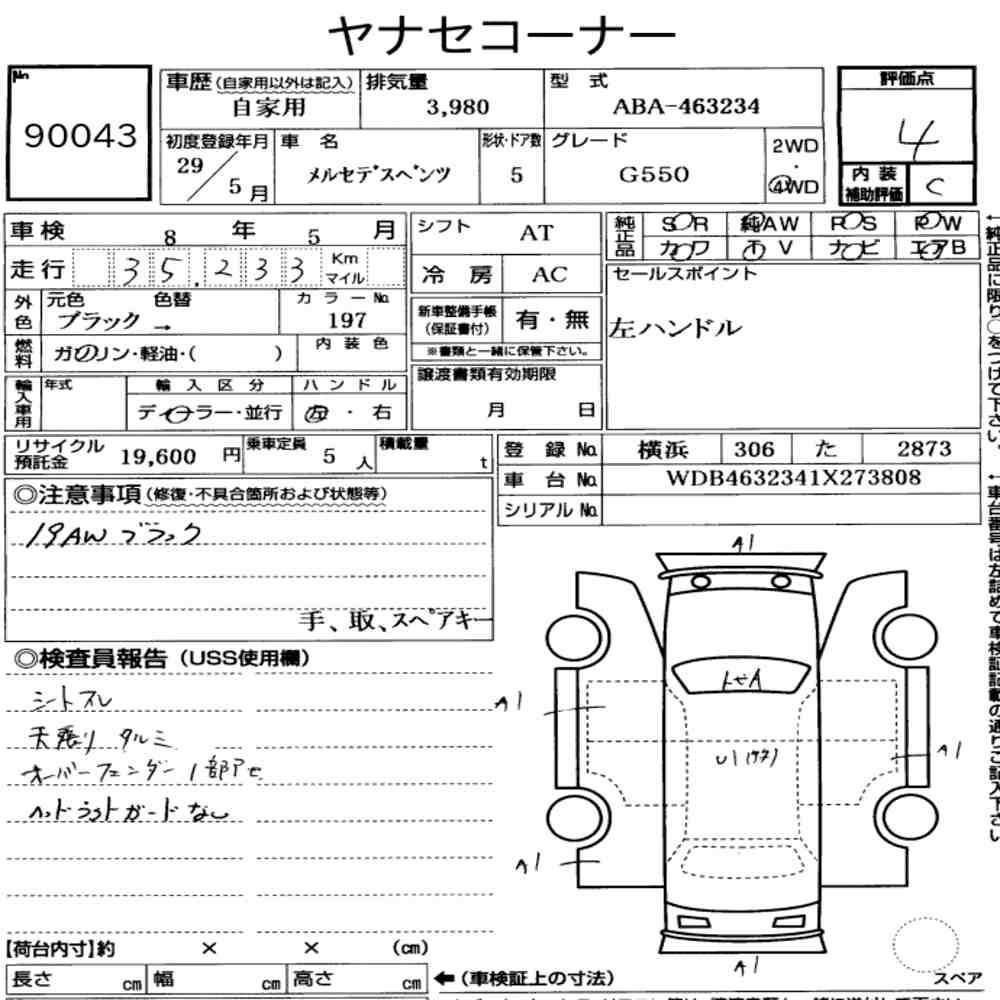 ヤナセコーナー
No. 90043
車歴(自家用以外は記入) 自家用
排気量 3,980
型 式 ABA-463234
評価点 4
初度登録年月 29/5月
車 名 メルセデスベンツ
形状・ドア数 5
グレード G550
2WD・4WD
内装補助評価 C
車検 8 年 5 月
走行 35,233 Km マイル
シフト AT
冷房 AC
純正品 S◯R 純AW P◯S P◯W
カ◯ワ ◯V ナ◯ビ エアB
外色 元色 色替 ブラック →
カラーNo. 197
燃料 ガソリン・軽油・( )
内装色
新車整備手帳(保証書付) 有・無
※書類と一緒に保管下さい。
セールスポイント
左ハンドル
←純正品に限り◯をつけて下さい。
輸入車用 年式
輸入区分 ディーラー・並行
ハンドル 左・右
譲渡書類有効期限
月 日
リサイクル預託金 19,600 円
乗車定員 5 人
積載量 t
登録No. 横浜 306 た 2873
車台No. WDB4632341X273808
シリアルNo.
←車台番号は左詰めで車検証記載の通りご記入下さい
◎注意事項(修復・不具合箇所および状態等)
19AW ブラック
手、取、スペアキー
◎検査員報告(USS使用欄)
シートスレ
天張り タルミ
オーバーフェンダー1部アセ
ヘッドライトガードなし
A1
トセA
A1
U1(サク)
A1
A1
A1
スペア
【荷台内寸】約 × × (cm)
長さ cm 幅 cm 高さ cm
←(車検証上の寸法)